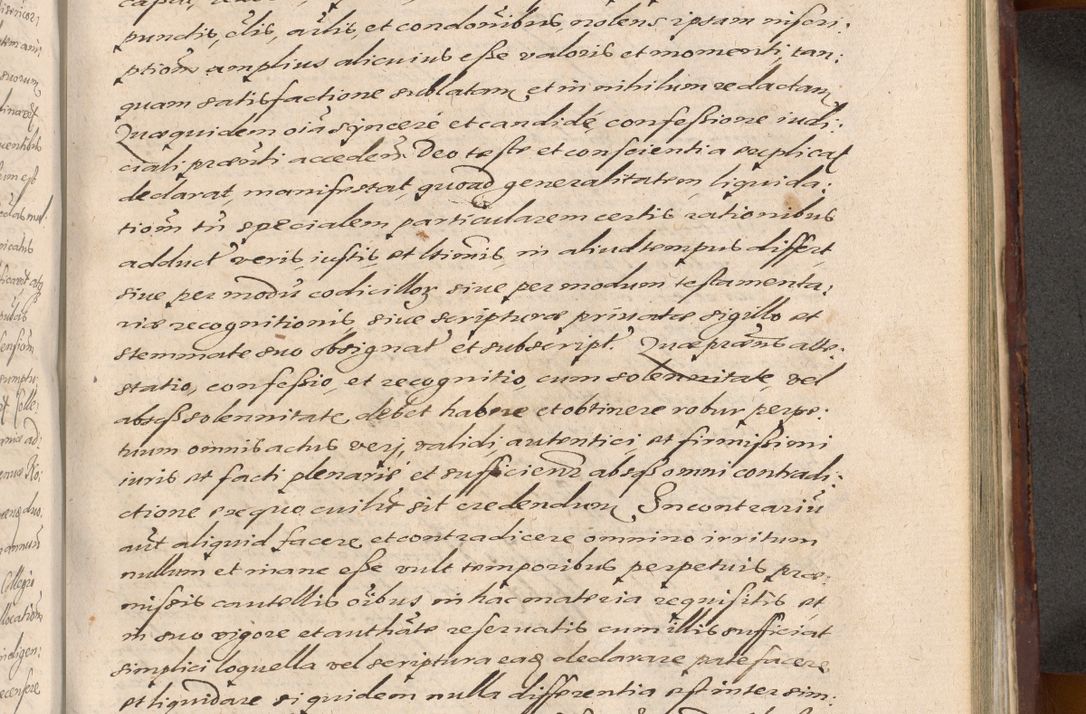 pundis, clis, aulis, et condonibus, nolens ipsam inscri:
ptiom amplius alicuius esse valoris et momenti, tan:
quam satisfactione sublatam et in nihilum redactam
Quaequidem oia syncere et candide confessione iudi:
ciali praenti accedens Deo teste et conscientia explicat
declarat, manifestat, quoad generalitatem liquida:
tiom tn specialem particularem certis rationibus
adduct veris, iustis, et ltimis, in aliud tempus differt
siue per modu codicillor siue per modum testamenta:
riae recognitionis, siue scripturae priuatae sigillo et
stemmate suo obsignat et subscript. Quae praens atte:
statio, confessio, et recognitio, cum solennitate, vel
absq solennitate, debet habere et obtinere robur perpe:
tuum omnis actus verj, validi, autentici, et firmissimi
iuris et facti plenarie et sufficiens absq omni contradi:
ctione ex quo cuilit sit credendum. In contrariu
aut aliquid facere, et contradicere omnino irritum
nullum et inane esse vult temporibus perpetuis prae:
missis cautellis oibus in hac materia requisitis, et
in suo vigore et authate reseruatis cum illis sufficiat
simplici loquella vel scriptura eas declarare patefacere
et liquidare siquidem nulla differentia est inter sim: